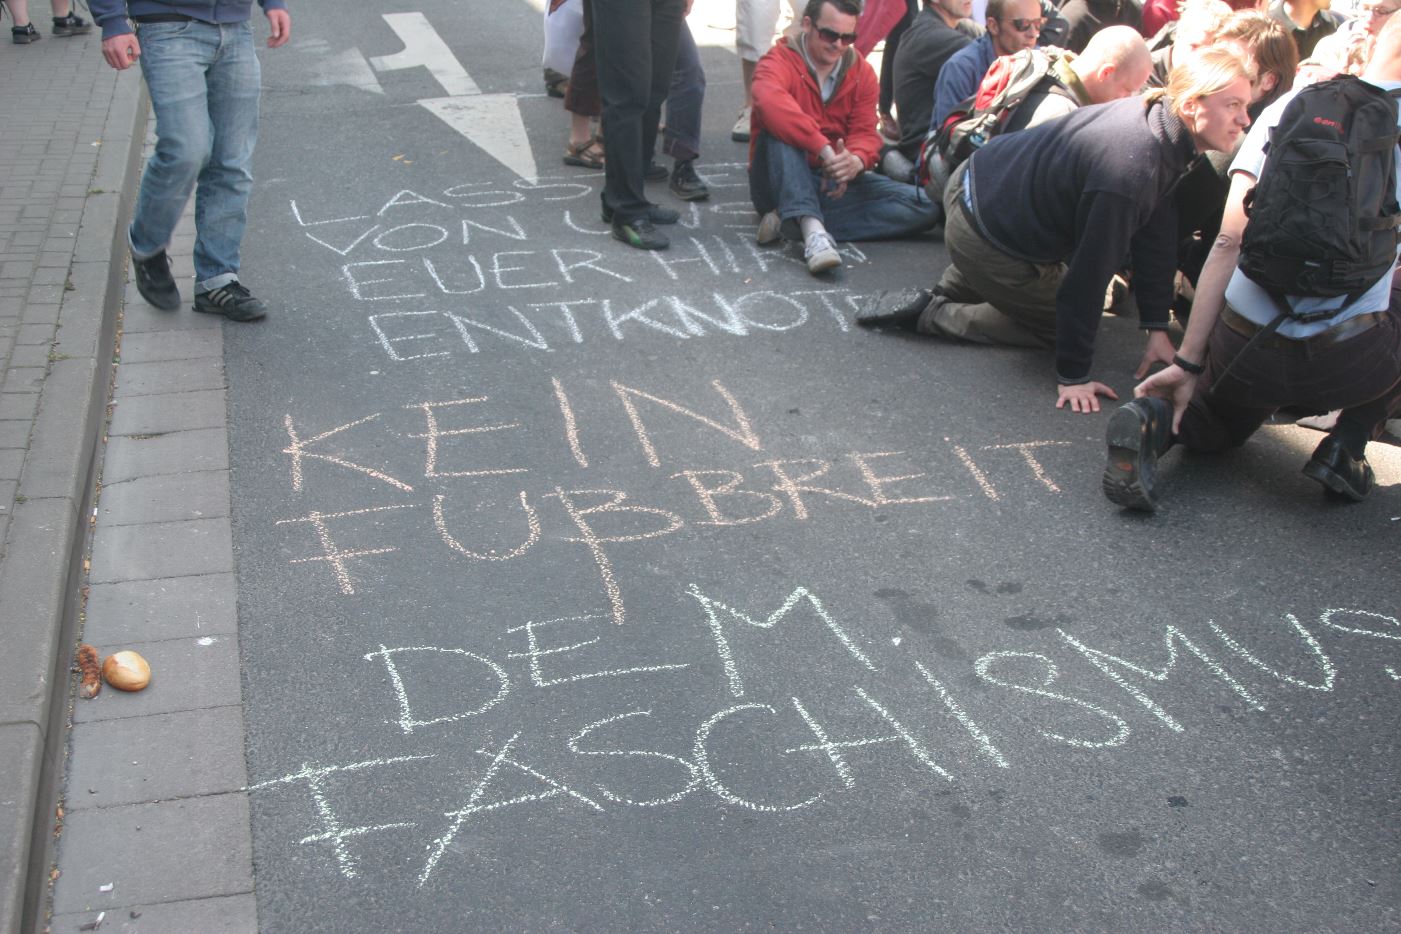 VON
EUER HIRN
ENTKNOT
KEIN
FUßBREIT
DEM
FASCHISMUS